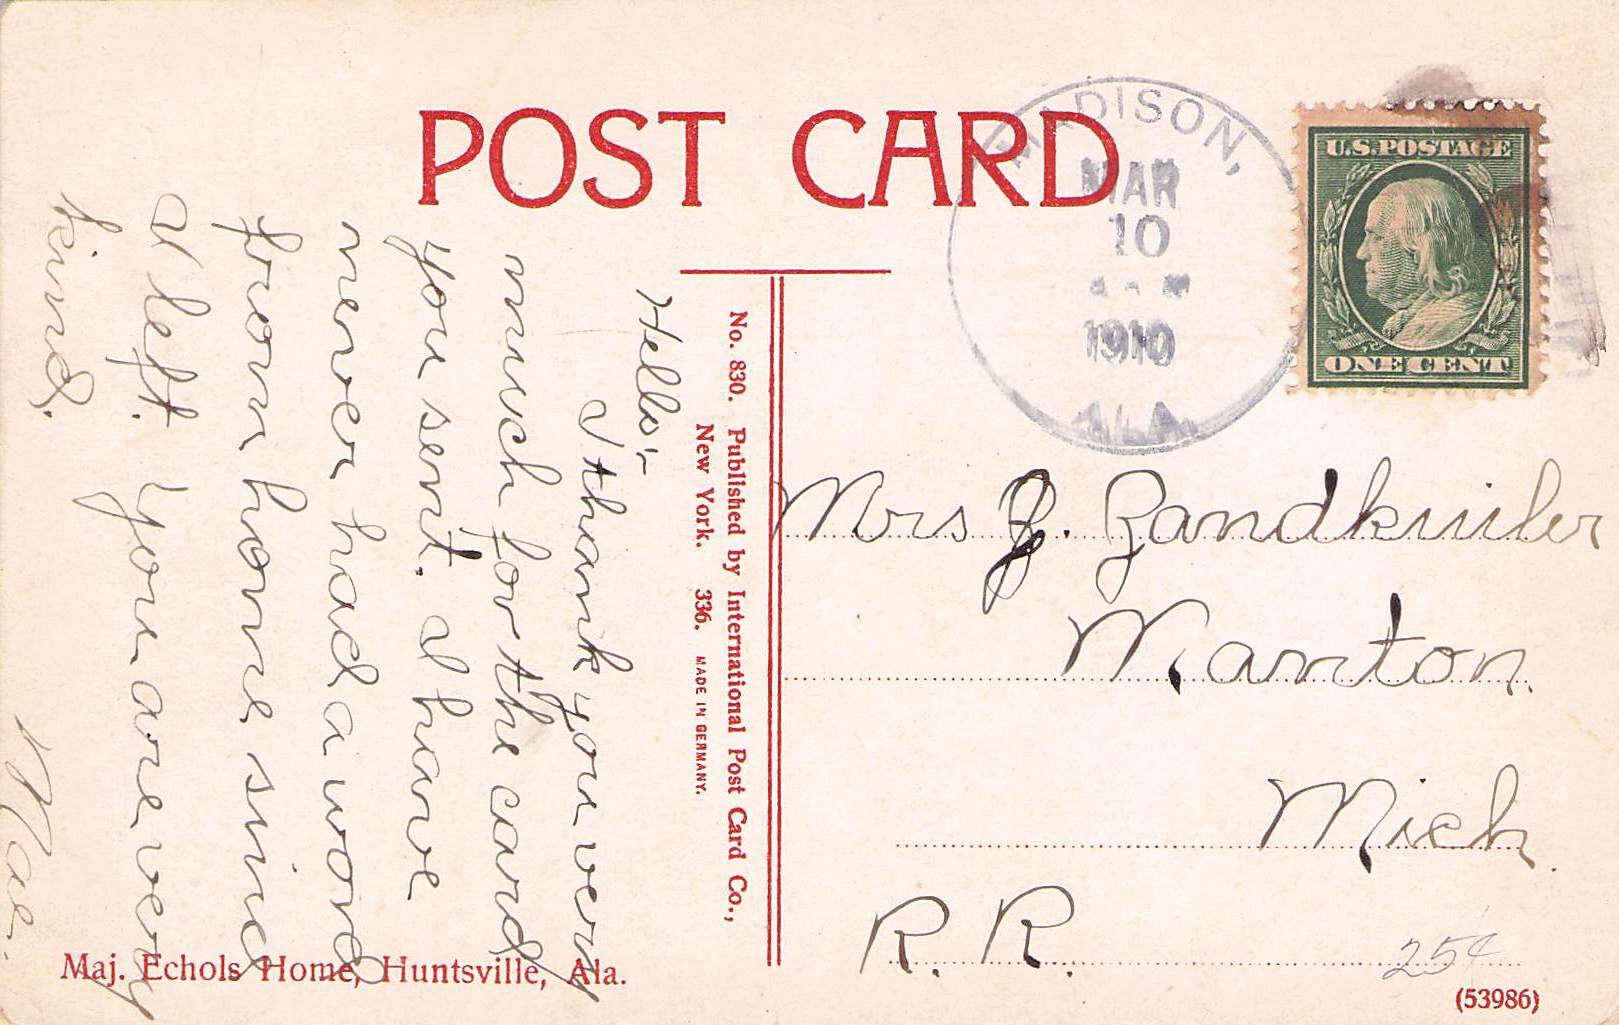 POST CARD
MADISON,
MAR
10
1910
ALA.
U.S. POSTAGE
ONE CENT
Hello:-
I thank you very
much for the card
you sent. I have
never had a word
from home since
I left. You are very
kind.
Mae.
No. 830. Published by International Post Card Co.,
New York. 336. MADE IN GERMANY.
Mrs J. Zandkuiler
Manton.
Mich.
R. R.
25¢
Maj. Echols Home, Huntsville, Ala.
(53986)